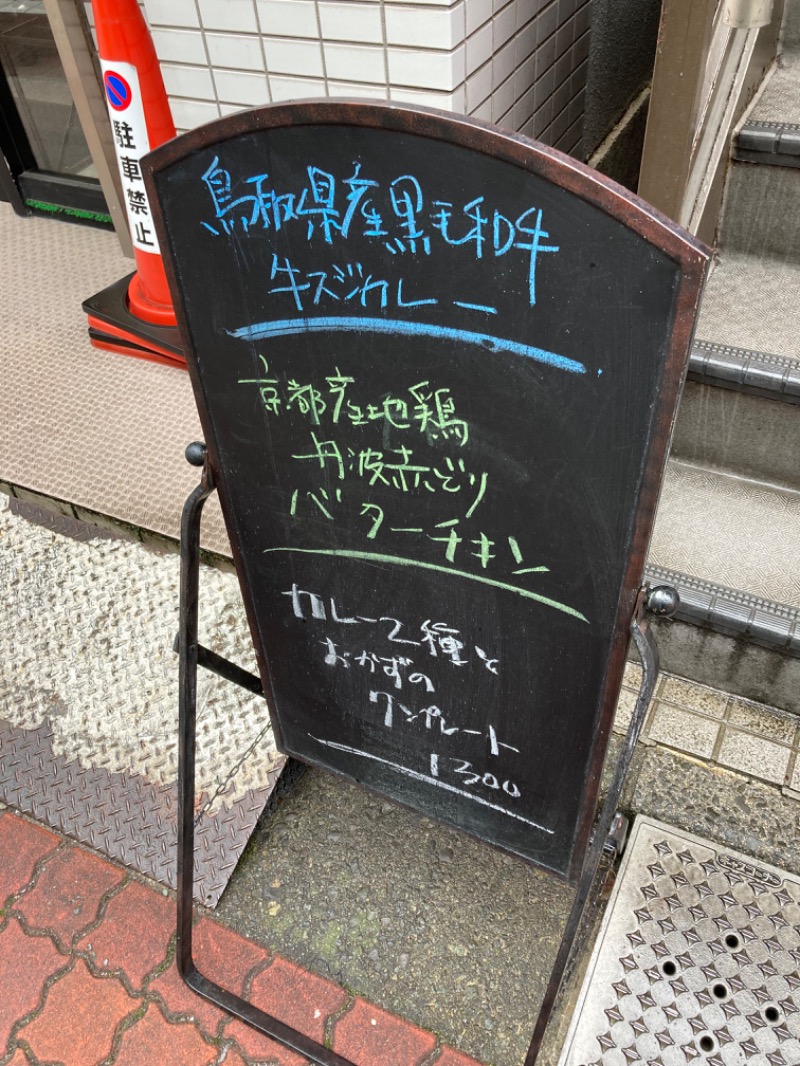 駐車禁止
鳥取県産黒毛和牛
牛スジカレー
京都産地鶏
丹波赤どり
バターチキン
カレー2種と
おかずの
ワンプレート
1300